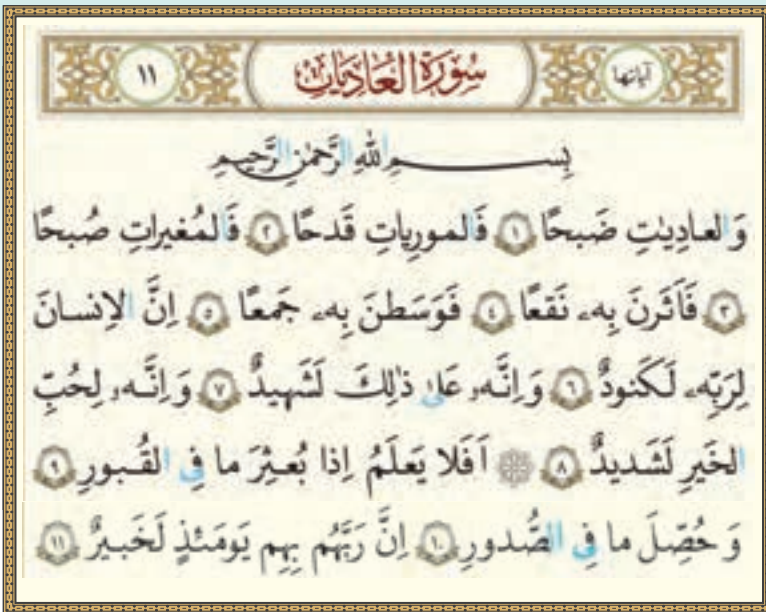 آیاتها سُورَةُ العَادِيَات ١١
بِسـمِ اللّٰهِ الرَّحمٰنِ الرَّحیمِ
وَ العادِیٰتِ ضَبحًا ﴿١﴾ فَالمورِیاتِ قَدحًا ﴿٢﴾ فَالمُغیراتِ صُبحًا
﴿٣﴾ فَاَثَرنَ بِهٖ نَقعًا ﴿٤﴾ فَوَسَطنَ بِهٖ جَمعًا ﴿٥﴾ اِنَّ الاِنسانَ
لِرَبِّهٖ لَکَنودٌ ﴿٦﴾ وَ اِنَّهٗ عَلیٰ ذٰلِکَ لَشَهیدٌ ﴿٧﴾ وَ اِنَّهٗ لِحُبِّ
الخَیرِ لَشَدیدٌ ﴿٨﴾ ۞ اَفَلا یَعلَمُ اِذا بُعثِرَ ما فِی القُبورِ ﴿٩﴾
وَ حُصِّلَ ما فِی الصُّدورِ ﴿١٠﴾ اِنَّ رَبَّهُم بِهِم یَومَئِذٍ لَخَبیرٌ ﴿١١﴾